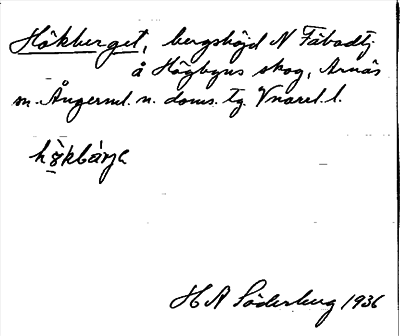 Hökberget, bergshöjd N Fäbodtj.
å Högbyns skog, Arnäs
sn. Ångerml. n. doms. tg. Vnorrl. l.
H A Söderberg 1936